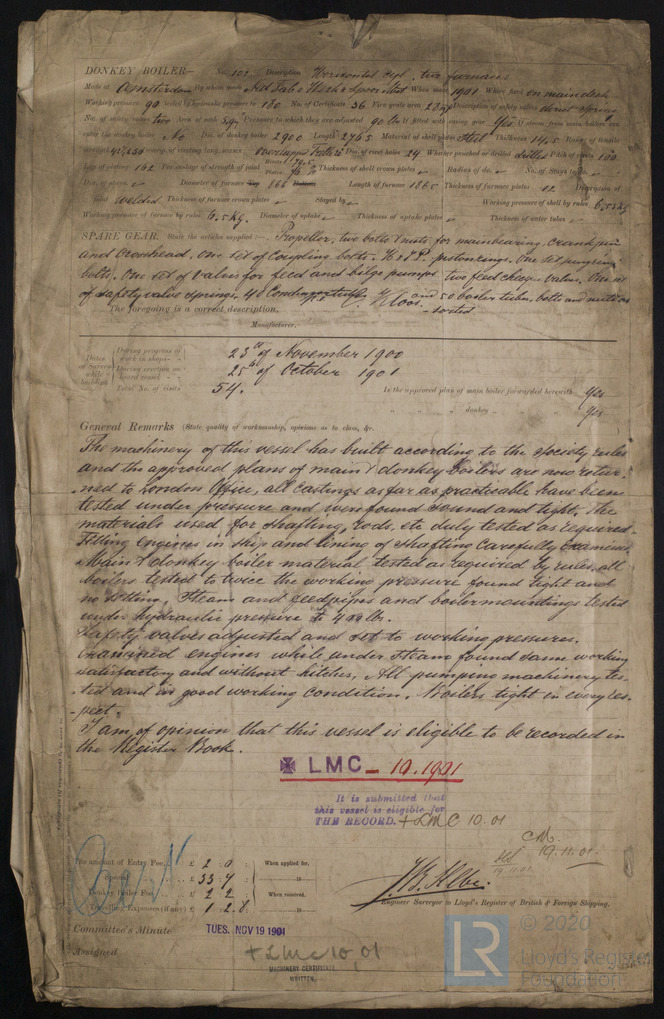 DONKEY BOILER— No. 102 Description Horizontal cyl., two furnaces
Made at Amsterdam By whom made Ned Fab v Werk & Spoor Mat When made 1901 Where fixed on main deck
Working pressure 90 tested by hydraulic pressure to 180 No. of Certificate 36 Fire grate area Description of safety valves direct spring
No. of safety valves two Area of each Pressure to which they are adjusted 90 lb If fitted with easing gear yes If steam from main boilers can
enter the donkey boiler No Dia. of donkey boiler 2900 Length 2765 Material of shell plates Steel Thickness 14,5 Range of tensile
strength Descrip. of riveting long. seams Dia. of rivet holes 24 Whether punched or drilled drilled Pitch of rivets 100
Lap of plating 162 Per centage of strength of joint Rivets Plates Thickness of shell crown plates Radius of do. No. of Stays to do.
Dia. of stays Diameter of furnace 866 Length of furnace 1865 Thickness of furnace plates 12 Description of
joint welded Thickness of furnace crown plates Stayed by Working pressure of shell by rules 6.5 kg
Working pressure of furnace by rules 6.5 kg. Diameter of uptake Thickness of uptake plates Thickness of water tubes
SPARE GEAR. State the articles supplied:— Propeller, two bolts & nuts for mainbearing, crankpin
and Crosshead, one set of Coupling bolts. H & L P. pistonrings. One set
bolts. One set of valves for feed and bilge pumps two feed check valves. One set
of safety valve springs. 40 Condenser tubes and 50 boiler tubes, bolts and nuts as-
-sorted
The foregoing is a correct description,
Manufacturer.
Dates of Survey while building
During progress of work in shops - - 23rd of November 1900
During erection on board vessel - - 25th of October 1901
Total No. of visits 54.
Is the approved plan of main boiler forwarded herewith yes
" " " donkey " " " yes
General Remarks (State quality of workmanship, opinions as to class, &c.
The machinery of this vessel has built according to the Society rules
and the approved plans of main & donkey boilers are now retur-
ned to London Office, all castings as far as practicable have been
tested under pressure and were found sound and tight. The
materials used for shafting, rods, etc duly tested as required.
Fitting engines in ship and lining of shafting Carefully Examined.
Main & donkey boiler material tested as required by rules, all
boilers tested to twice the working pressure found tight and
no setting, Steam and feedpipes and boiler mountings tested
under hydraulic pressure to 400 lbs.
Safety valves adjusted and set to working pressures.
Examined engines while under steam found same working
satisfactory and without hitches, All pumping machinery tes-
ted and in good working condition. Boilers tight in every res-
-pect.
I am of opinion that this vessel is eligible to be recorded in
the Register Book.
✠ LMC – 10.1901
It is submitted that
this vessel is eligible for
THE RECORD. + LMC 10.01
CM.
19.11.01
19.11.01
The amount of Entry Fee.. £ 2 : 0 : When applied for,
Special £ 33.7
Donkey Boiler Fee £ 2.2 When received,
Travelling Expenses (if any) £ 1.2.6
Engineer Surveyor to Lloyd's Register of British & Foreign Shipping.
Committee's Minute TUES. NOV 19 1901
Assigned + LMC 10.01
MACHINERY CERTIFICATE
WRITTEN.
LR © 2020
Lloyd's Register
Foundation